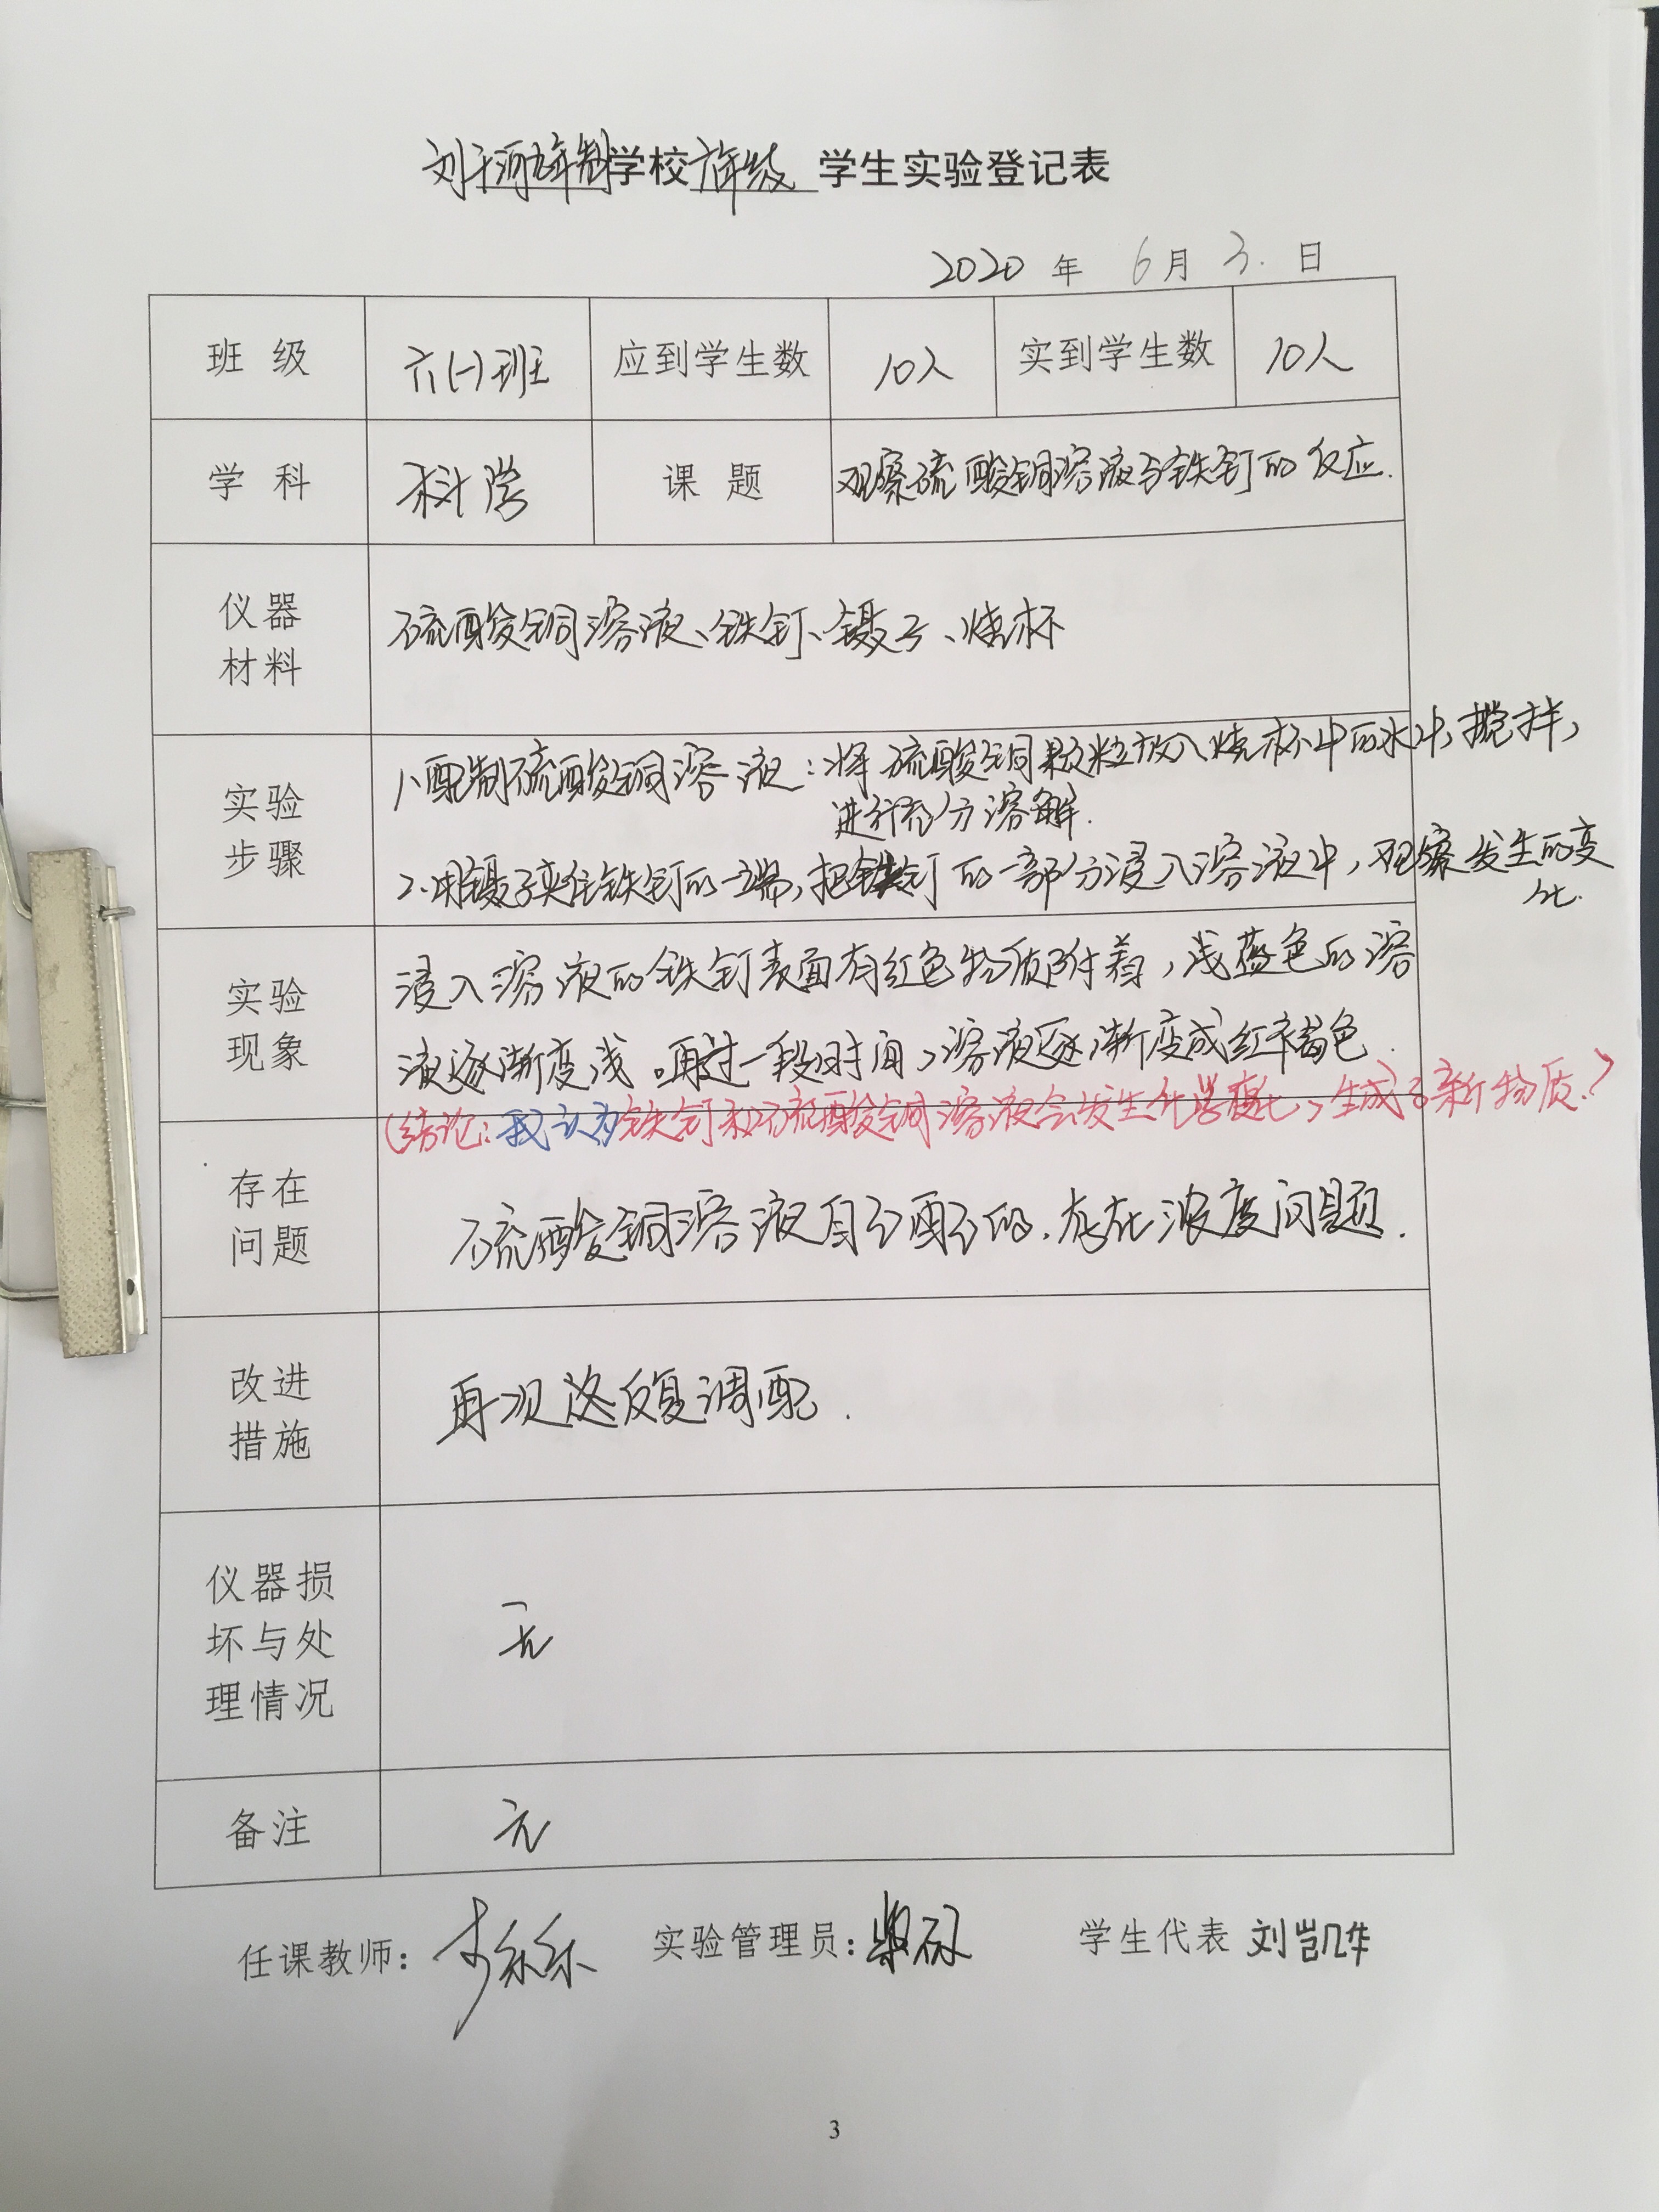 刘干河九年制学校六年级 学生实验登记表
2020 年 6 月 3. 日
班 级 六(一)班 应到学生数 10人 实到学生数 10人
学 科 科学 课 题 观察硫酸铜溶液与铁钉的反应.
仪器
材料
硫酸铜溶液、铁钉、镊子、烧杯
实验
步骤
1、配制硫酸铜溶液:将硫酸铜颗粒放入烧杯中的水中,搅拌,
进行充分溶解.
2、用镊子夹住铁钉的一端,把铁钉的一部分浸入溶液中,观察发生的变
化.
实验
现象
浸入溶液的铁钉表面有红色物质附着,浅蓝色的溶
液逐渐变浅。再过一段时间,溶液逐渐变成红褐色.
(结论:我认为铁钉和硫酸铜溶液会发生化学变化,生成了新物质.)
存在
问题
硫酸铜溶液自己配的.存在浓度问题.
改进
措施
再次 反复调配.
仪器损
坏与处
理情况
无
备注
无
任课教师: 实验管理员: 学生代表 刘凯华
3